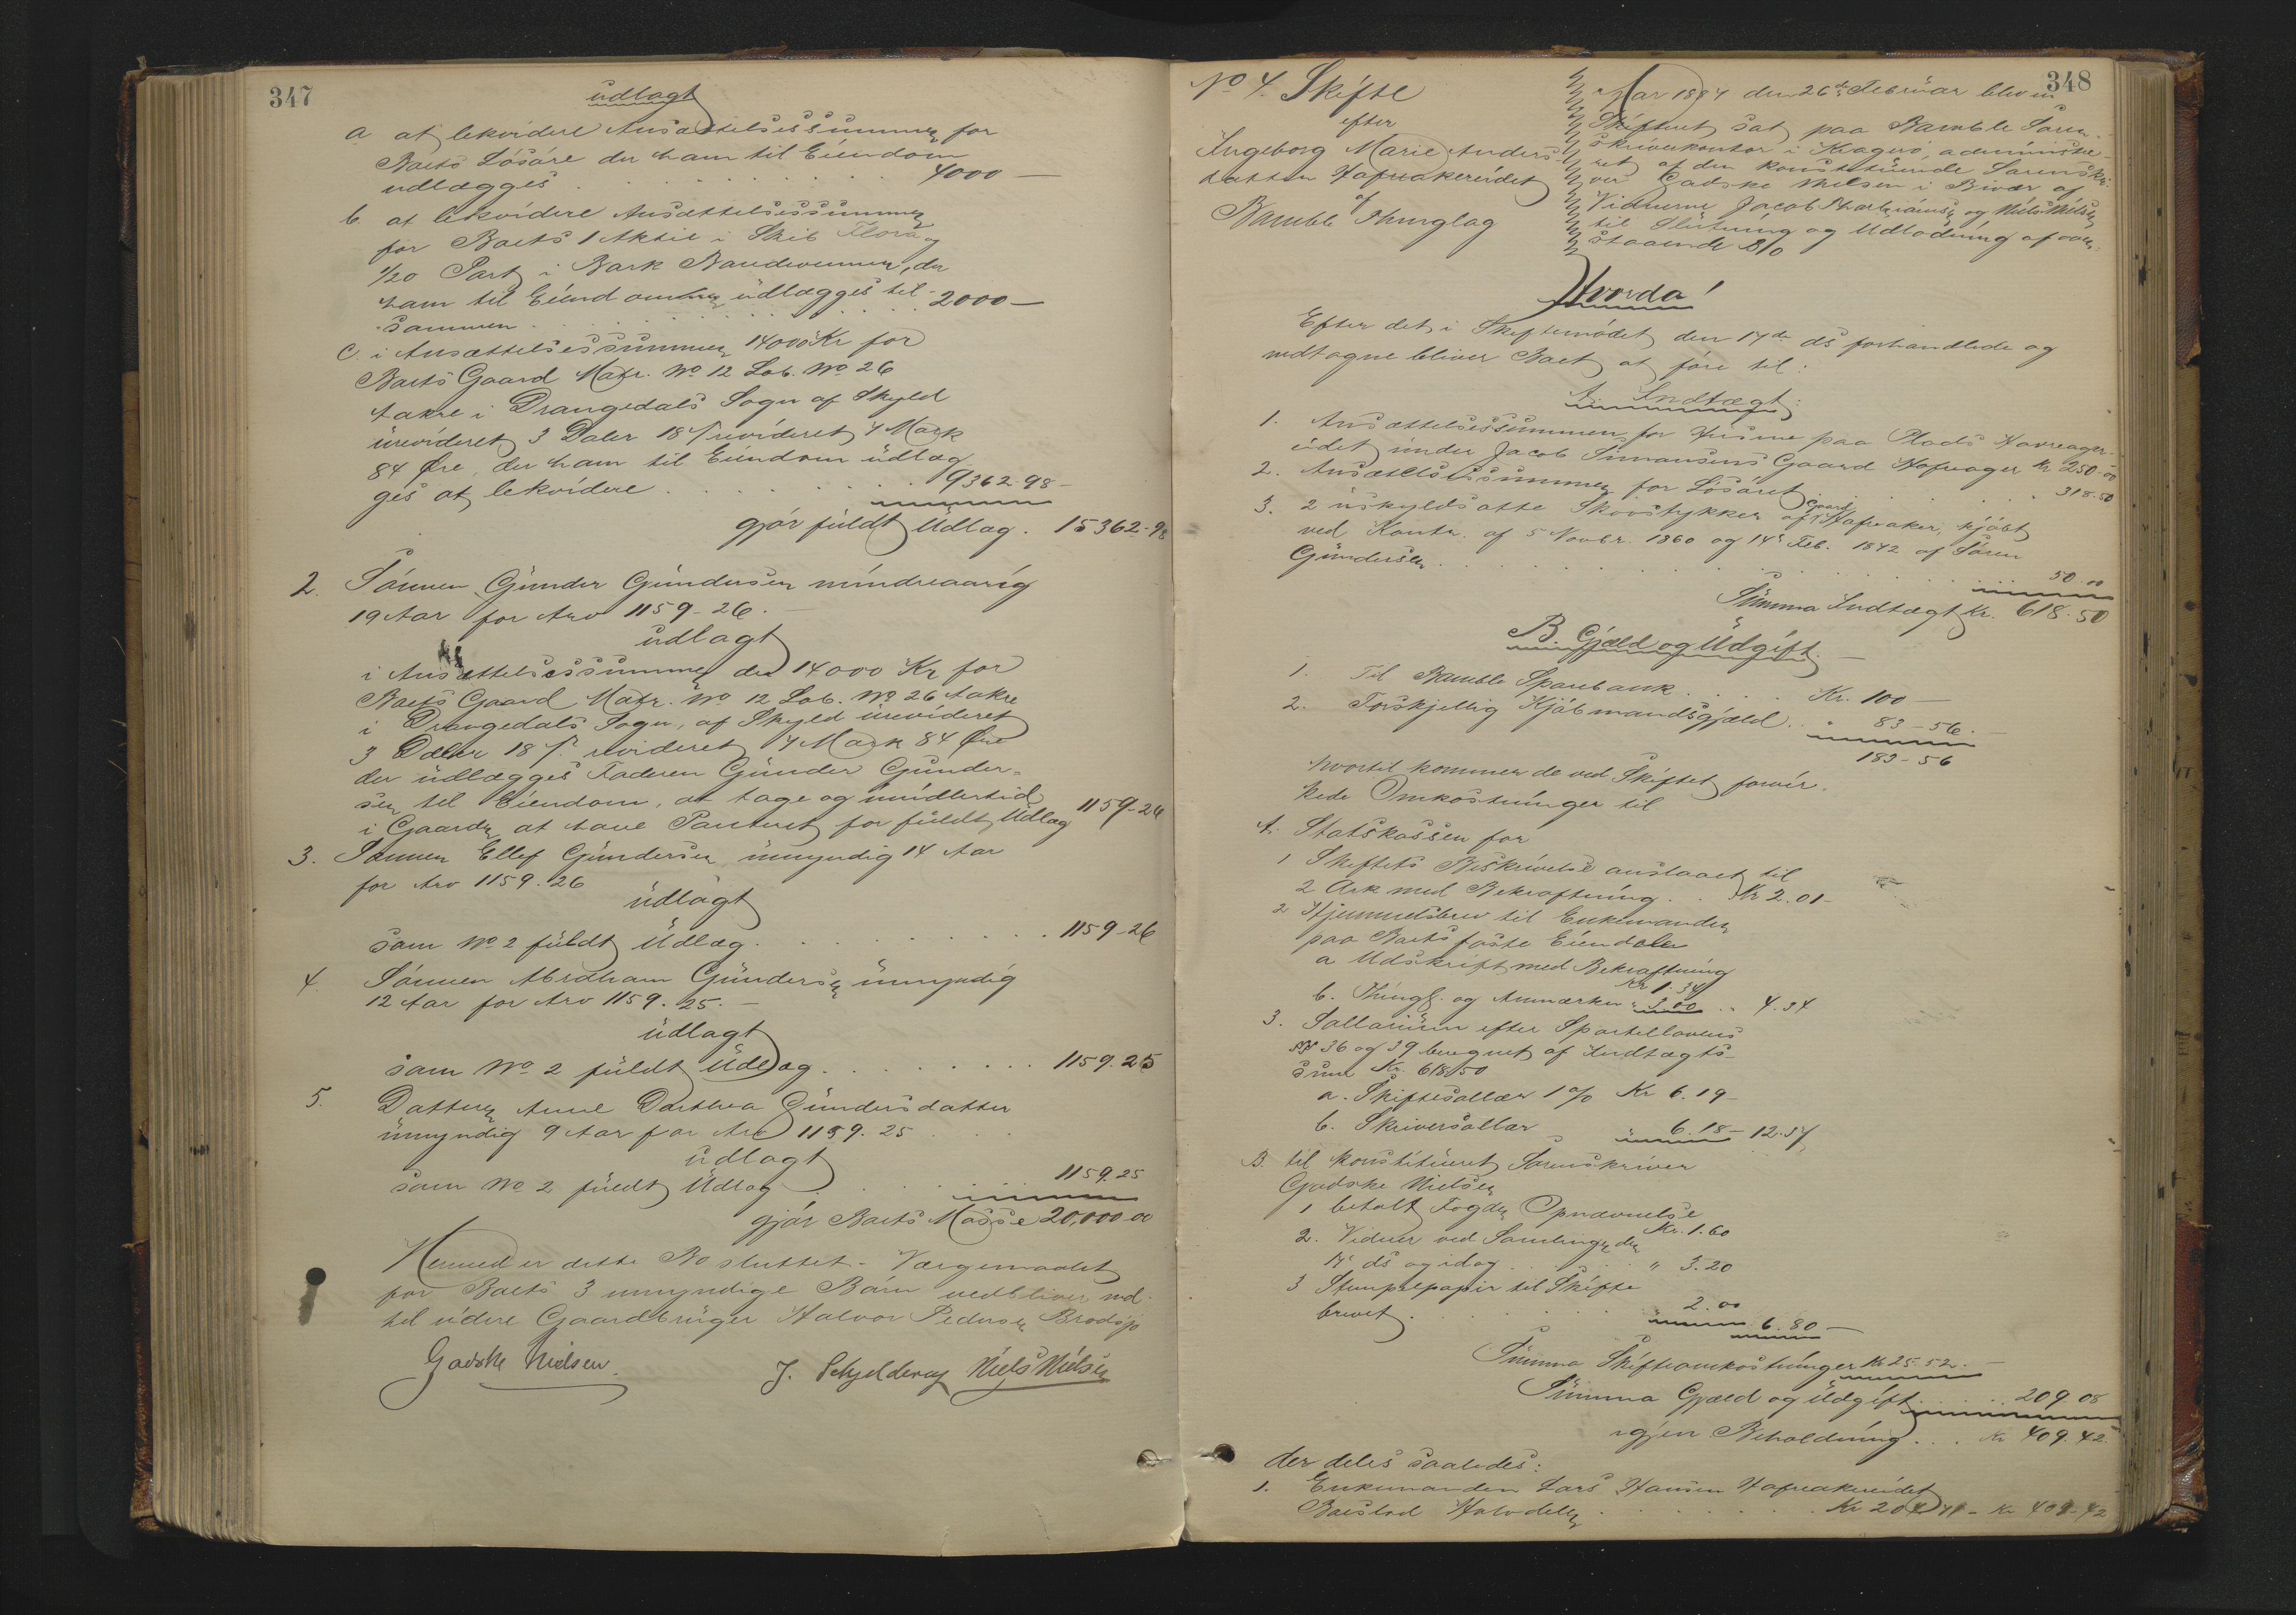 347
udlagt
a at lekvidere Ansættelsessummen for
Boets Løsøre der ham til Eiendom
udlægges . . . . . . . . . 4000 —
b. at lekvidere Ansættelsessummen
for Boets 1 Aktie i Skib Flora og
1/20 Part i Bark Bandevennen, der
ham til Eiendommen udlægges til
sammen . . . . . . . . . . 2000 —
c. i Ansættelsessummen 14000 Kr for
Boets Gaard Matr. No 12 Løb. No 26
Aakre i Drangedals Sogn af Skyld
urevideret 3 Daler 18 ß revideret 4 Mark
84 Øre, der ham til Eiendom udlæg
ges at lekvidere . . . . . . 9362-98 -
gjør fuldt Udlæg . 15362-98
2. Sønnen Gunder Gundersen mindreaarig
19 Aar for Arv 1159-26. -
udlagt
i Ansættelsessummen den 14000 Kr for
Boets Gaard Matr. No 12 Løb. No 26 Aakre
i Drangedals Sogn, af Skyld urevideret
3 Daler 18 ß. revideret 4 Mark 84 Øre
der udlægges Faderen Gunder Gunder-
sen til Eiendom, at tage og imidlertid
i Gaarden at have Panteret for fuldt Udlæg 1159-26
3. Sønnen Ellef Gundersen umyndig 14 Aar
for Arv 1159. 26
udlagt
som No 2 fuldt Udlæg . . . . . . . . 1159-26
4. Sønnen Abraham Gundersen umyndig
12 Aar for Arv 1159. 25. -
udlagt
som No 2 fuldt Udlæg . . . . . . . 1159. 25
5. Datteren Anne Dorthea Gundersdatter
umyndig 9 Aar for Arv 1159. 25
udlagt
som No 2 fuldt Udlæg . . . . 1159. 25
gjør Boets Masse 20,000 00
Hermed er dette Bo sluttet. Værgemaalet
for Boets 3 umyndige Børn vedbliver ind-
til videre Gaardbruger Halvor Pedersen Brødsjø
Gadske Nielsen. J. Schjelderup Niels Nielsen
348
No 4. Skifte
efter
Ingeborg Marie Anders-
datter Hafreakereidet
af
Bamble Thinglag
Aar 1884 den 26de Februar blev en
Skifteret sat paa Bamble Soren-
skriverkontor i Kragerø, administre-
ret af den konstituerede Sorenskri-
ver Gadske Nielsen i Bivær af
Vidnerne Jacob Mathiasen og Niels Nielsen
til Slutning og Udlodning af oven-
staaende Bo
Hvorda!
Efter det i Skiftemødet den 14de ds forhandlede og
vedtagne bliver Boet at føre til:
A. Indtægt:
1. Ansættelsessummen for Husene paa Plads Havreager-
eidet under Jacob Simonsens Gaard Hafreager Kr 250-00
2. Ansættelsessummen for Løsøret . . . . . 318-50
3. 2 uskyldsatte Skovstykker af Gaard Hafreaker, kjøbt
ved Kontr. af 5 Novbr. 1860 og 14de Feb. 1842 af Søren
Gundersen . . . . . . . . . . . . 50.00
Summa Indtægt Kr. 618-50
B. Gjæld og Udgift. —
1. Til Bamble Sparebank . . . . Kr. 100 —
2. Forskjellig Kjøbmandsgjæld . . " 83-56.
183-56
hvortil kommer de ved Skiftet forvir-
kede Omkostninger til
A. Statskassen for
1 Skiftets Beskrivelse anslaaet til
2 Ark med Bekræftning . . Kr 2.01-
2 Hjemmelsbrev til Enkemanden
paa Boets faste Eiendele
a Udskrift med Bekræftning
Kr 1.34
b. Thingl. og Anmærkn " 3.00 . . 4.34
3. Sallarium efter Sportellovens
§§ 36 og 39 beregnet af Indtægts-
sum Kr. 618.50
a. Skiftesallær 1 % Kr 6.19 -
b. Skriversallær " 6.18 - 12.37
B. til konstitueret Sorenskriver
Gadske Nielsen
1 betalt Fogden Opnævnelse
Kr. 1.60
2. Vidner ved Samlingen den
14' ds og idag . . . . " 3.20
3 Stempelpapir til Skifte
brevet . . . . . . 2.00
6.80 —
Summa Skifteomkostninger Kr 25-52. -
Summa Gjæld og Udgift . . . . 209. 08
igjen Beholdning . . . Kr 409. 42.
der deles saaledes:
1. Enkemanden Lars Hansen Hafreakereidet
Boeslod Halvdelen . . . . . . . Kr 204.71 - Kr 409-42